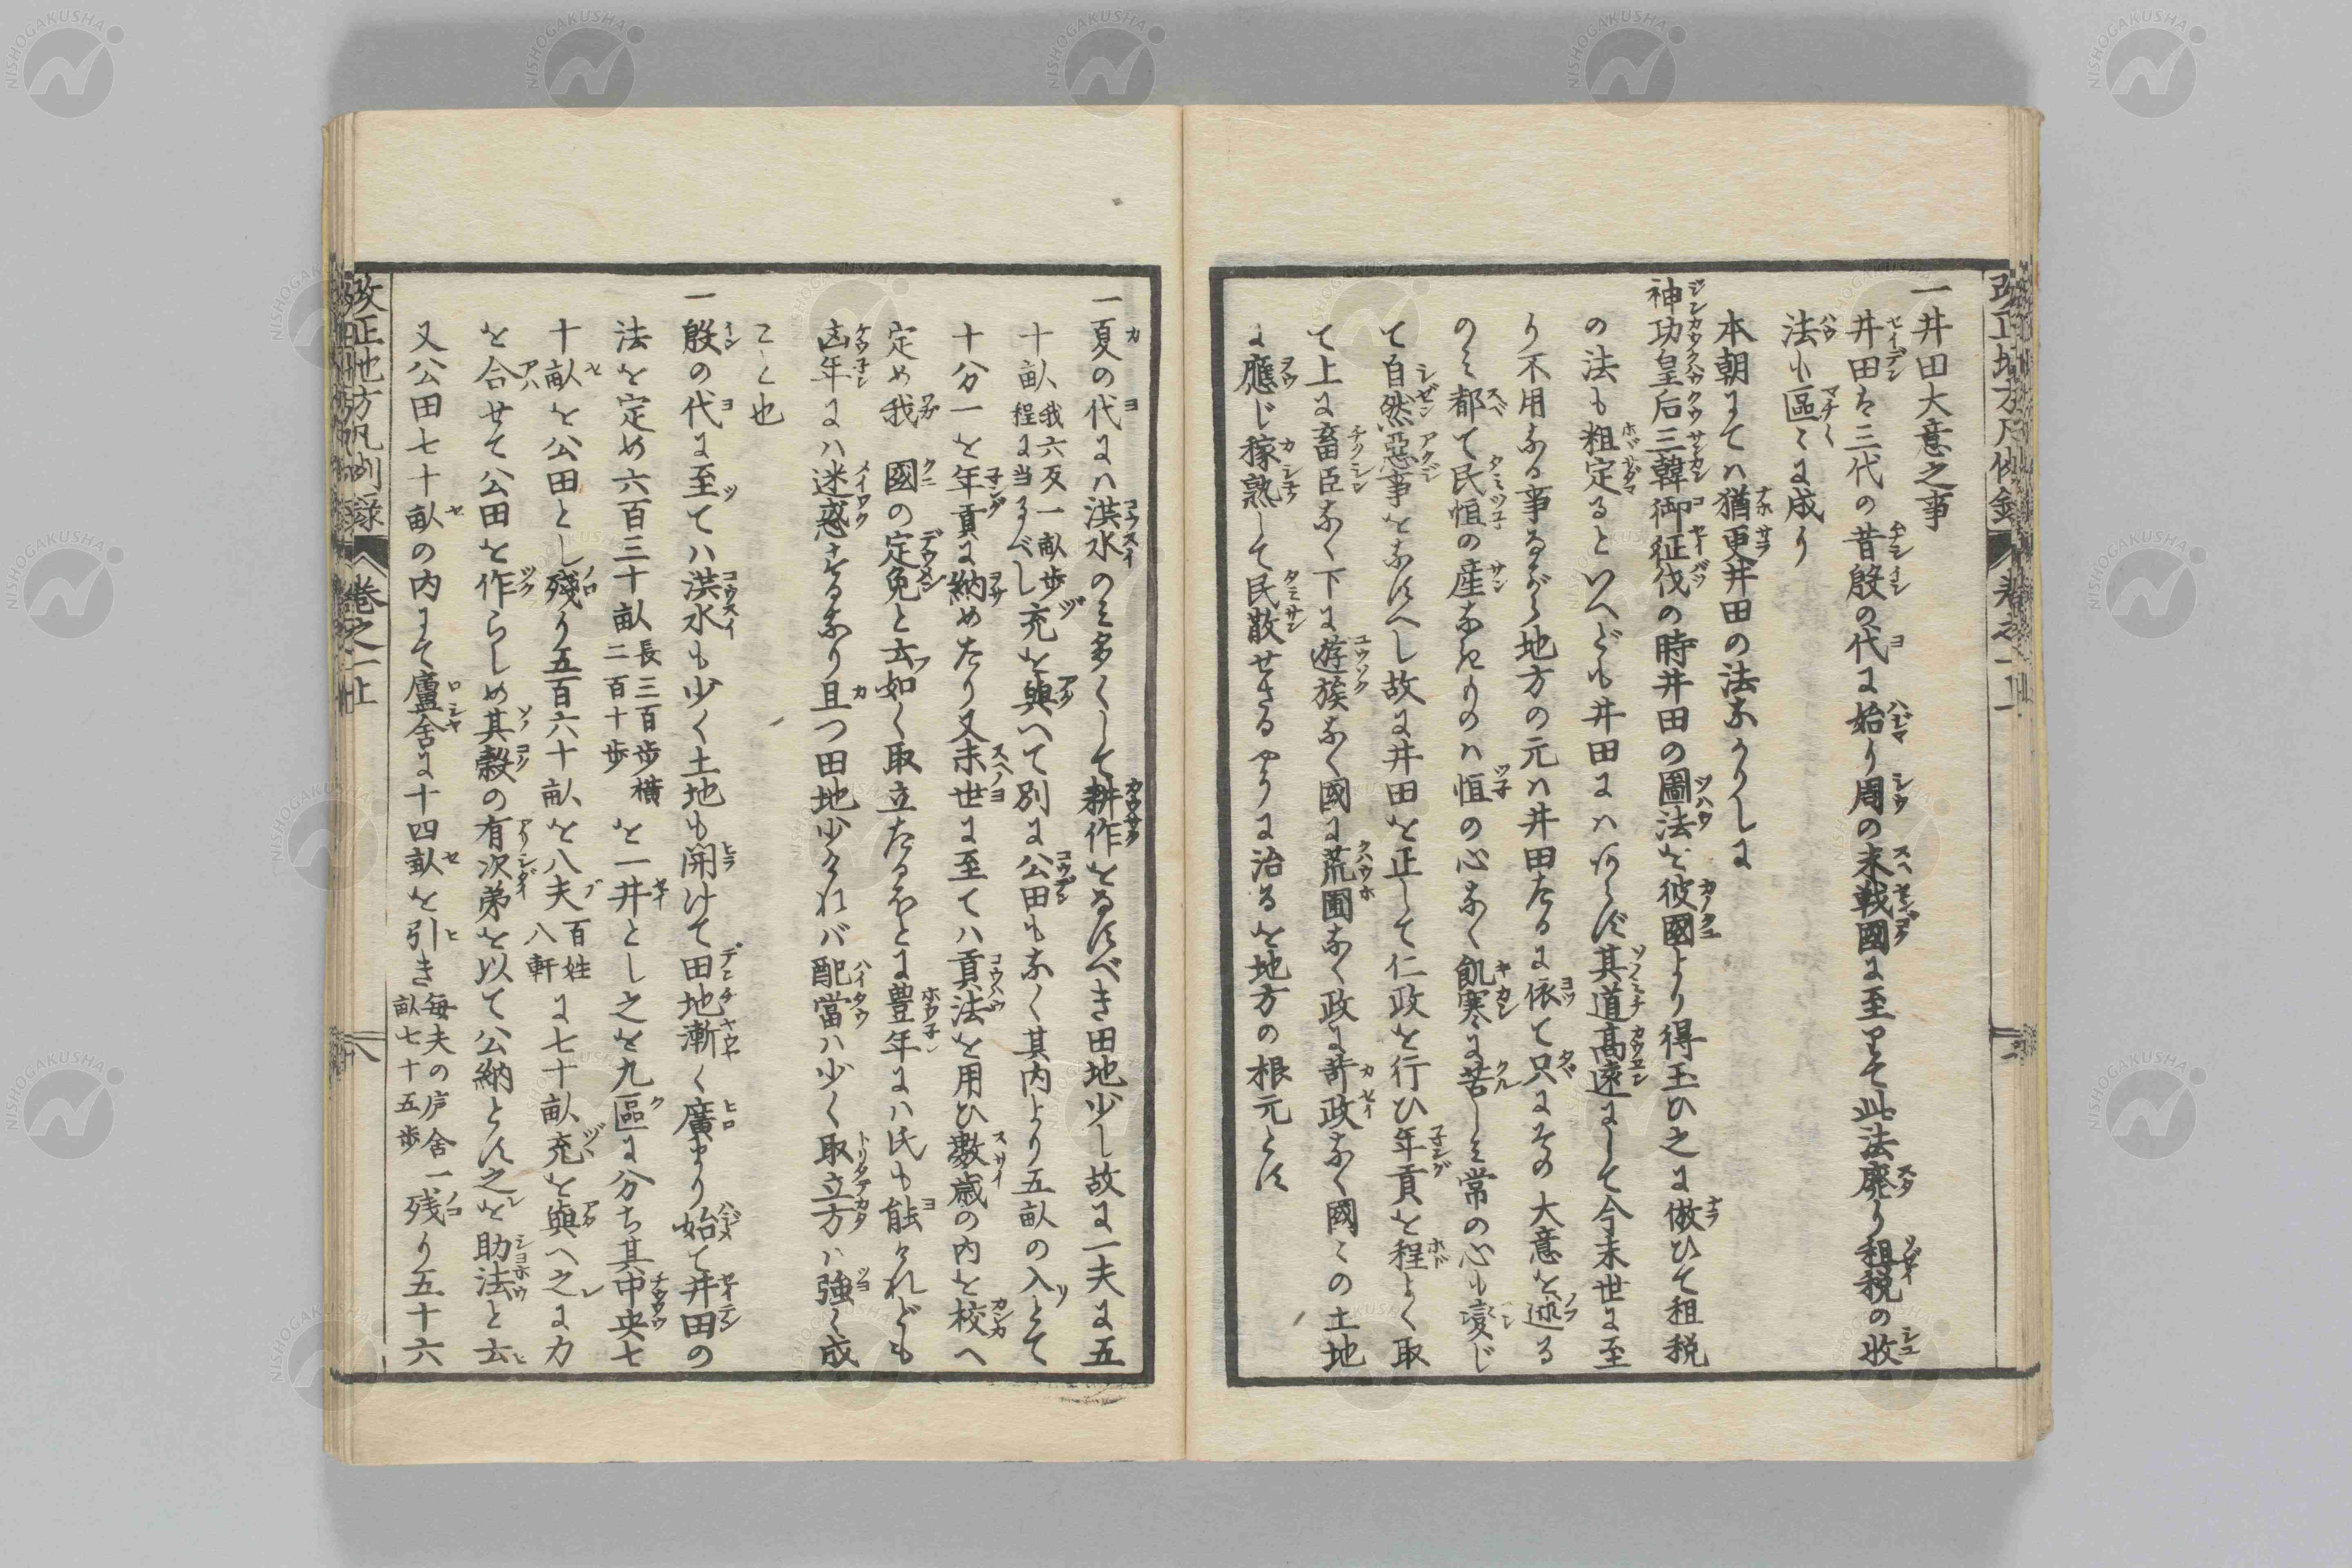 一井田大意之事
井田は三代の昔殷の代に始り周の末戦國に至りて此法廃り租税の收
法も區〻に成り
本朝にては猶更井田の法なかりしに
神功皇后三韓御征伐の時井田の圖法を彼國より得玉ひ之に倣ひて租税
の法も粗定ると いへども井田にハあらず其道高遠にして今末世に至
り不用なる事なるがら地方の元ハ井田たるに依て只にその大意を述る
のミ都て民恒の産なきものハ恒の心なく飢寒に苦しミ常の心も変じ
て自然惡事をなすへし故に井田を正して仁政を行ひ年貢を程よく取
て上に畜臣なく下に遊族なく國に荒圃なく政に苛政なく國〻の土地
に應じ稼熟して民散せさるやうに治るを地方の根元とす
一夏の代にハ洪水のミ多くして耕作をなすべき田地少し故に一夫に五
十畝我六反一畝歩程に当るべし充を與へて別に公田もなく其内より五畝の入とて
十分一を年貢に納めたり又末世に至てハ貢法を用ひ數歳の内を校へ
定め我 國の定免と云如く取立たるなとに豊年にハ民も能けれども
凶年にハ迷惑するなり且つ田地少けれバ配當ハ少く取立方ハ強く成
こと也
一殷の代に至てハ洪水も少く土地も開けて田地漸く廣まり始て井田の
法を定め六百三十畝長三百歩横二百十歩を一井とし之を九區に分ち其中央七
十畝を公田とし残り五百六十畝を八夫百姓八軒に七十畝充を與へ之に力
を合せて公田を作らしめ其穀の有次弟を以て公納とす之を助法と云
又公田七十畝の内にて廬舍に十四畝を引き毎夫の庐舍一畝七十五歩残り五十六
改正地方凡例録 巻之一上 八